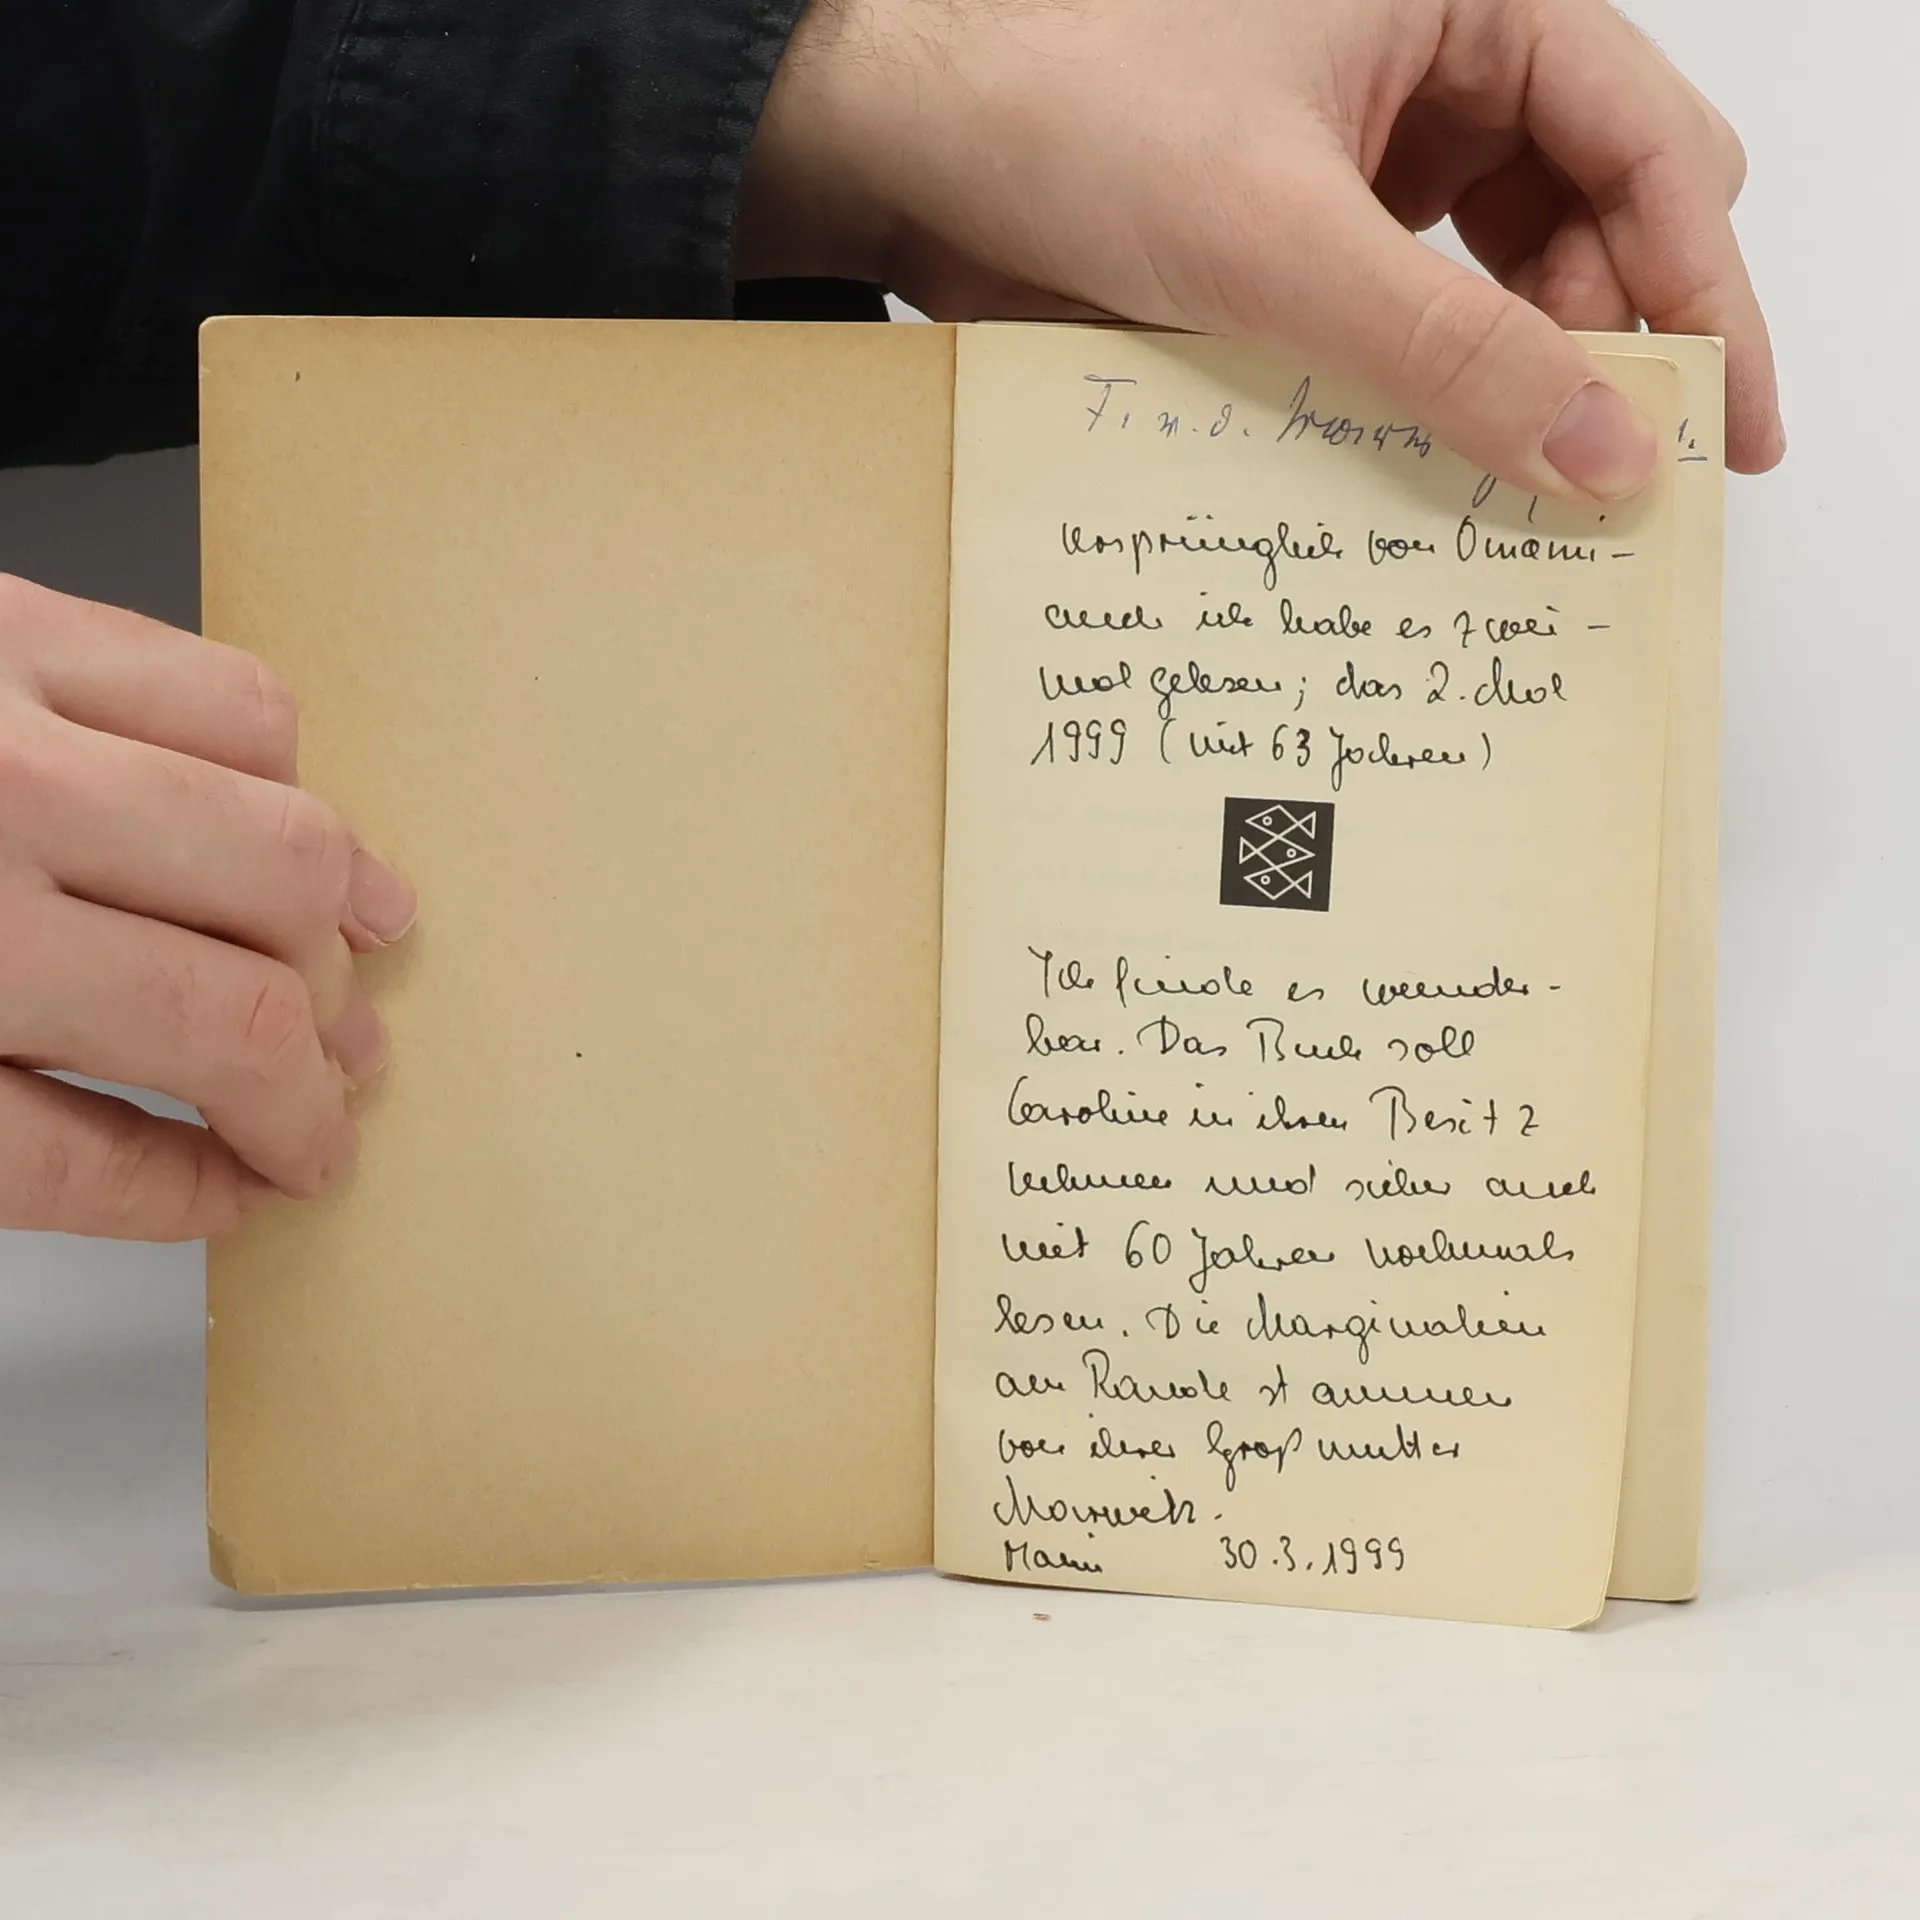 F. v. d.
Ursprünglich von Omami –
auch ich habe es zwei –
mal gelesen; das 2. Mal
1999 (mit 63 Jahren)
Ich finde es wunder-
bar. Das Buch soll
Caroline in ihren Besitz
nehmen und sicher auch
mit 60 Jahren nochmals
lesen. Die Marginalien
am Rande stammen
von ihrer Großmutter
Marwitz.
Mami 30.3.1999